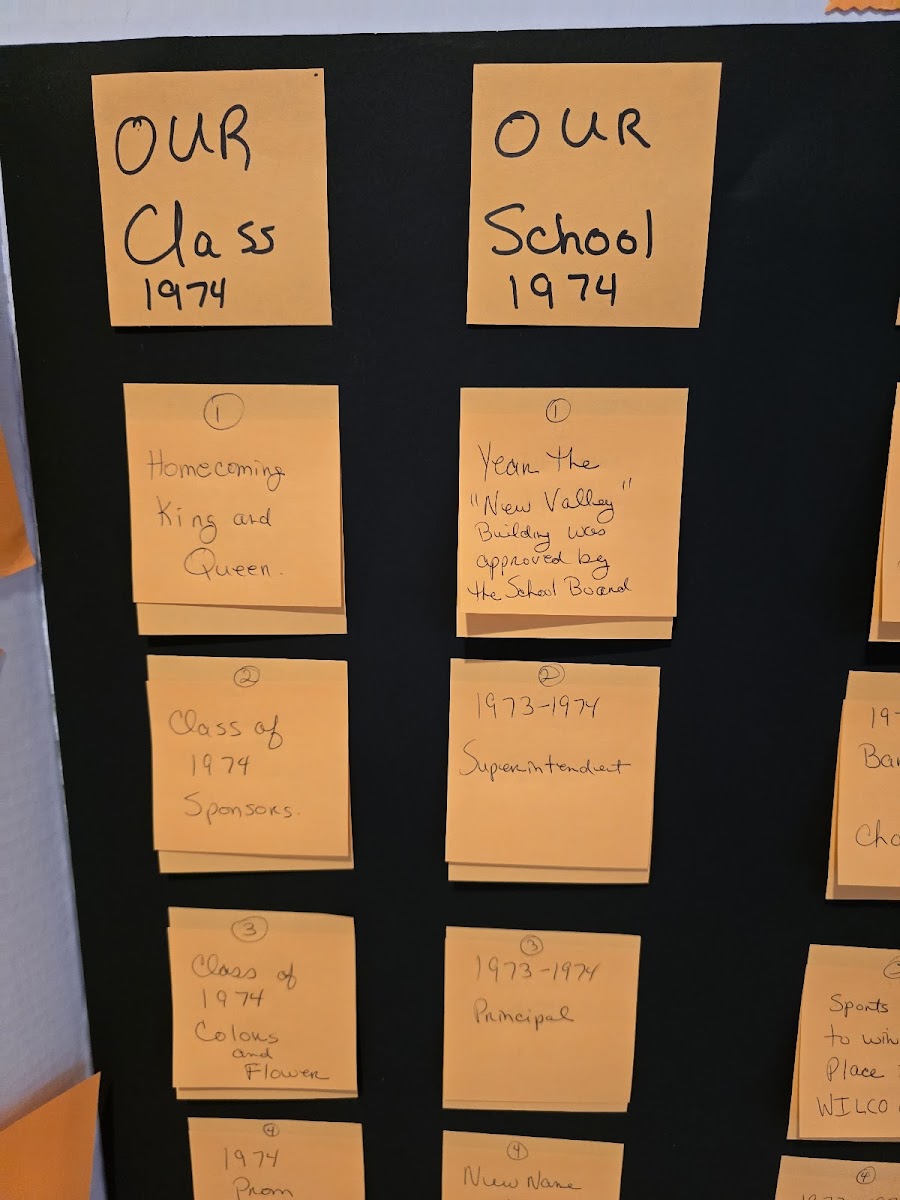 OUR
Class
1974
①
Homecoming
King and
Queen.
②
Class of
1974
Sponsors.
③
Class of
1974
Colors
and
Flower
④
1974
Prom
OUR
School
1974
①
Year the
"New Valley"
Building was
approved by
the School Board
②
1973-1974
Superintendent
③
1973-1974
Principal
④
New Name
Sports
to win
Place
WILCO
④